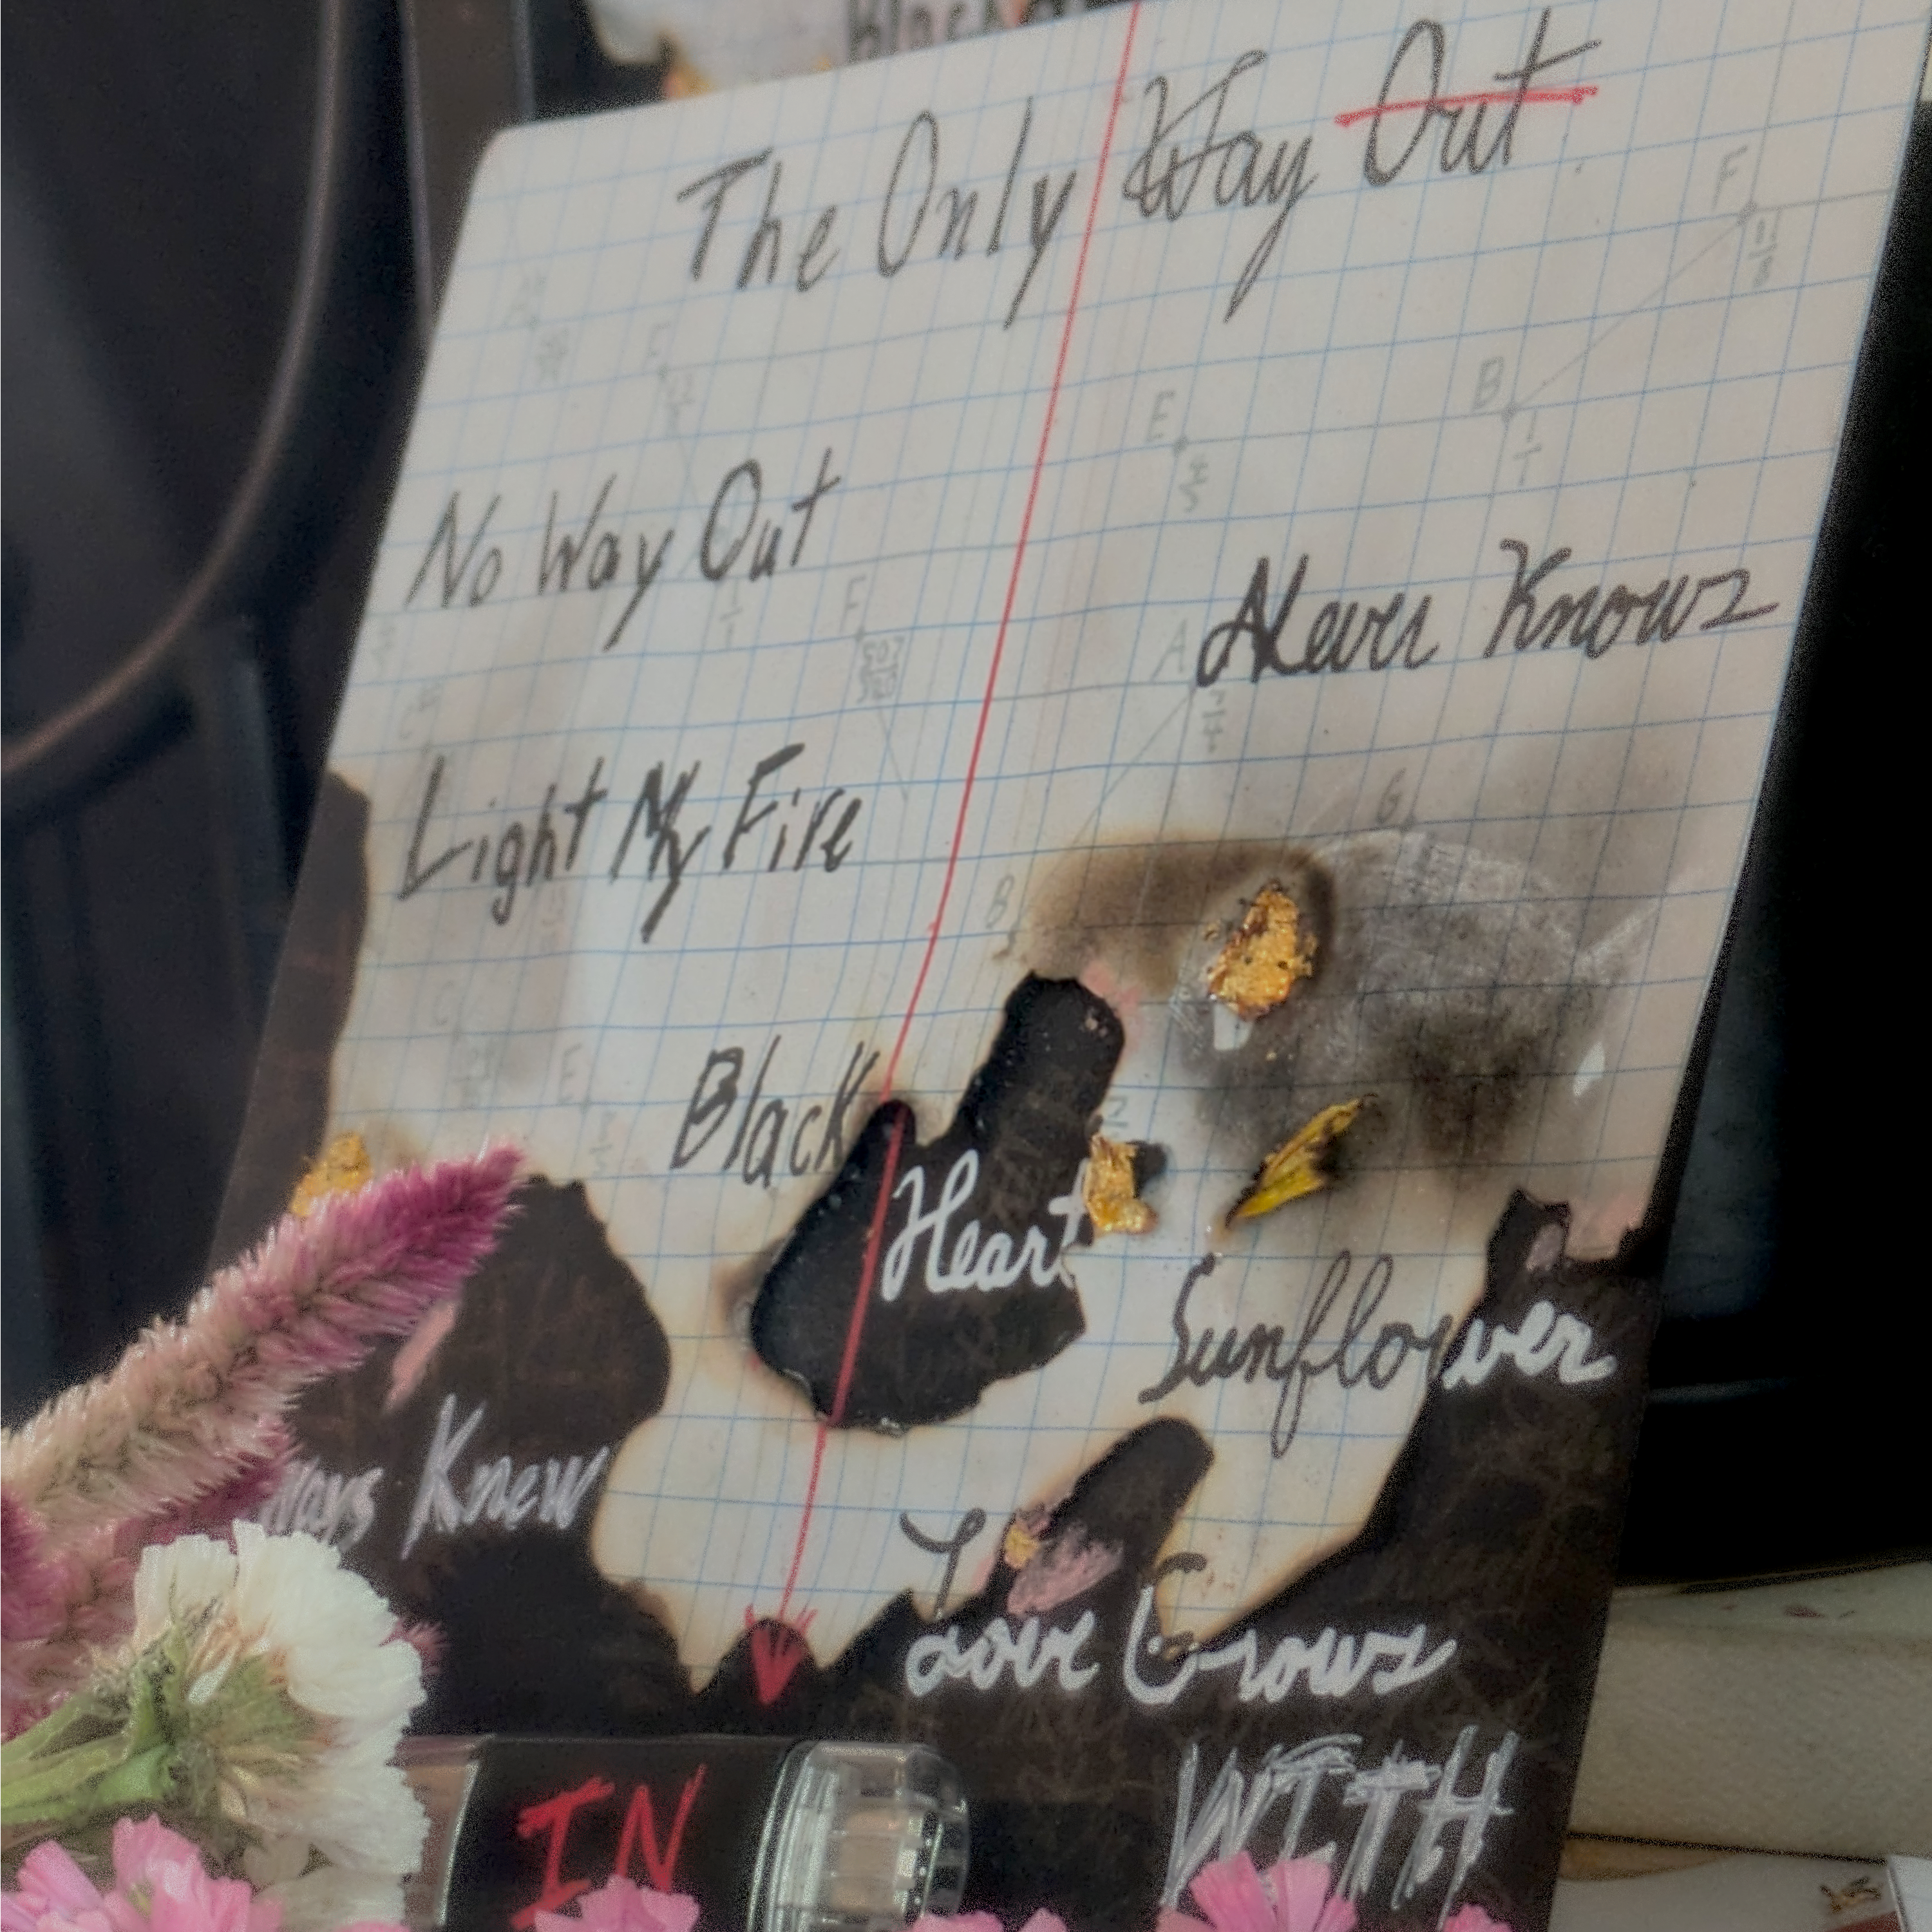 Black
The Only Way Out
F
B
E
No Way Out
F
Never Knows
A
Light My Fire
G
B
C
E
Black Heart
Sunflower
ways Knew
Love Grows
WITH
IN